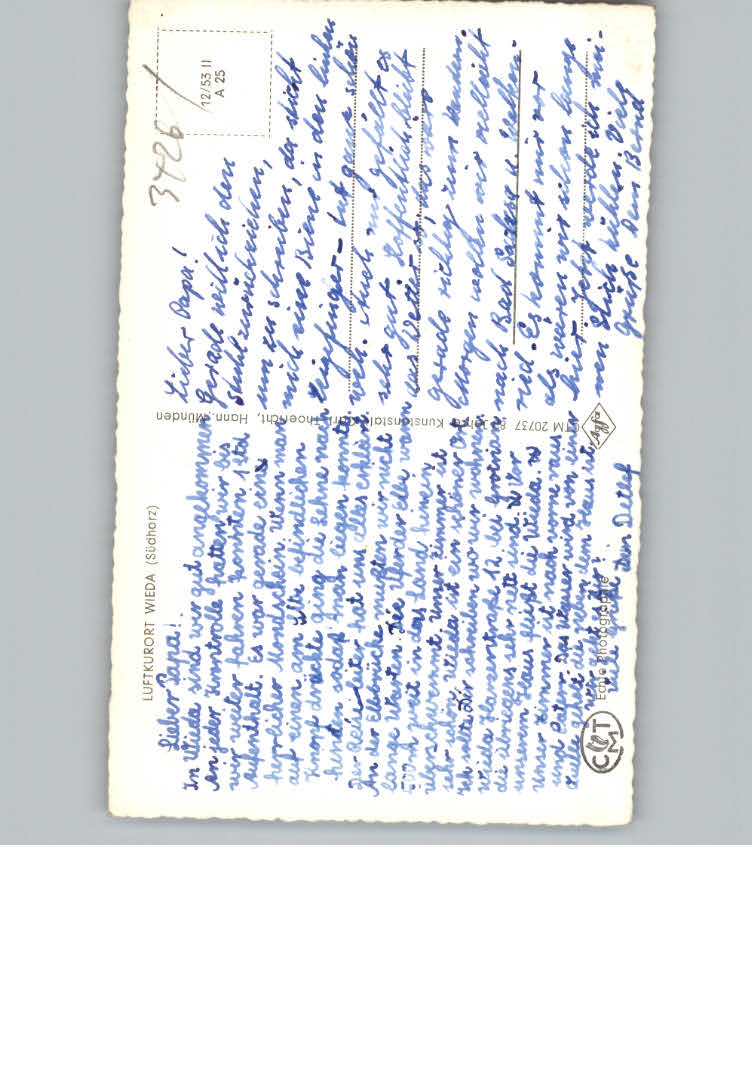 LUFTKURORT WIEDA (Südharz)
Lieber Papa!
In Wieda sind wir gut angekommen
An jeder Kontrolle hatten wir bis
wir weiter fahren konnten 1 std
Aufenthalt. Es war gerade ein
herrlicher Mondschein. Wenn man
auf einen am befindlichen
Knopf drückte ging die Lehne nach
hinten sodaß man liegen konnte.
Der Reiseleiter hat uns alles erklärt.
An der Elbbrücke mußten wir nicht
lange Warten. Die Ufer der Elbe waren
500 m weit in das Land hinein
überschwemmt. Unser Zimmer ist
sehr schön. Wieda ist ein schöner Ort
Ich sollte Dir schreiben wo wir wohnen
Wieda Harzerstraße 12 bei
die übrigens sehr nett sind. Vor
unserem Haus fließt die Wieda.
Unser Zimmer ist nach vorne raus
und Osten. Das Wasser wird von einer
Quelle geholt die neben dem Haus ist
Viele Grüße dein Detlef
CTM
Echte Photographie
CTM 20737 & Jahre Kunstanstalt Carl Thoericht, Hann. Münden
Agfa
12/53 II
A 25
3426
Lieber Papa!
Gerade will ich den
Stuhl zurückziehen,
um zu schreiben, da sticht
mich eine Biene in den linken
Zeigefinger - tut ganz schön
weh. Auch mir gefällt es
sehr gut. Hoffentlich bleibt
das Wetter so, das wär
gerade richtig zum
Morgen wollen wir vielleicht
nach Bad Sachsa u. Walken-
ried. Es kommt mir vor
als wären wir schon lange
hier. Jetzt werde ich mei-
nen Stich kühlen. Viele
Grüße Dein Bernd